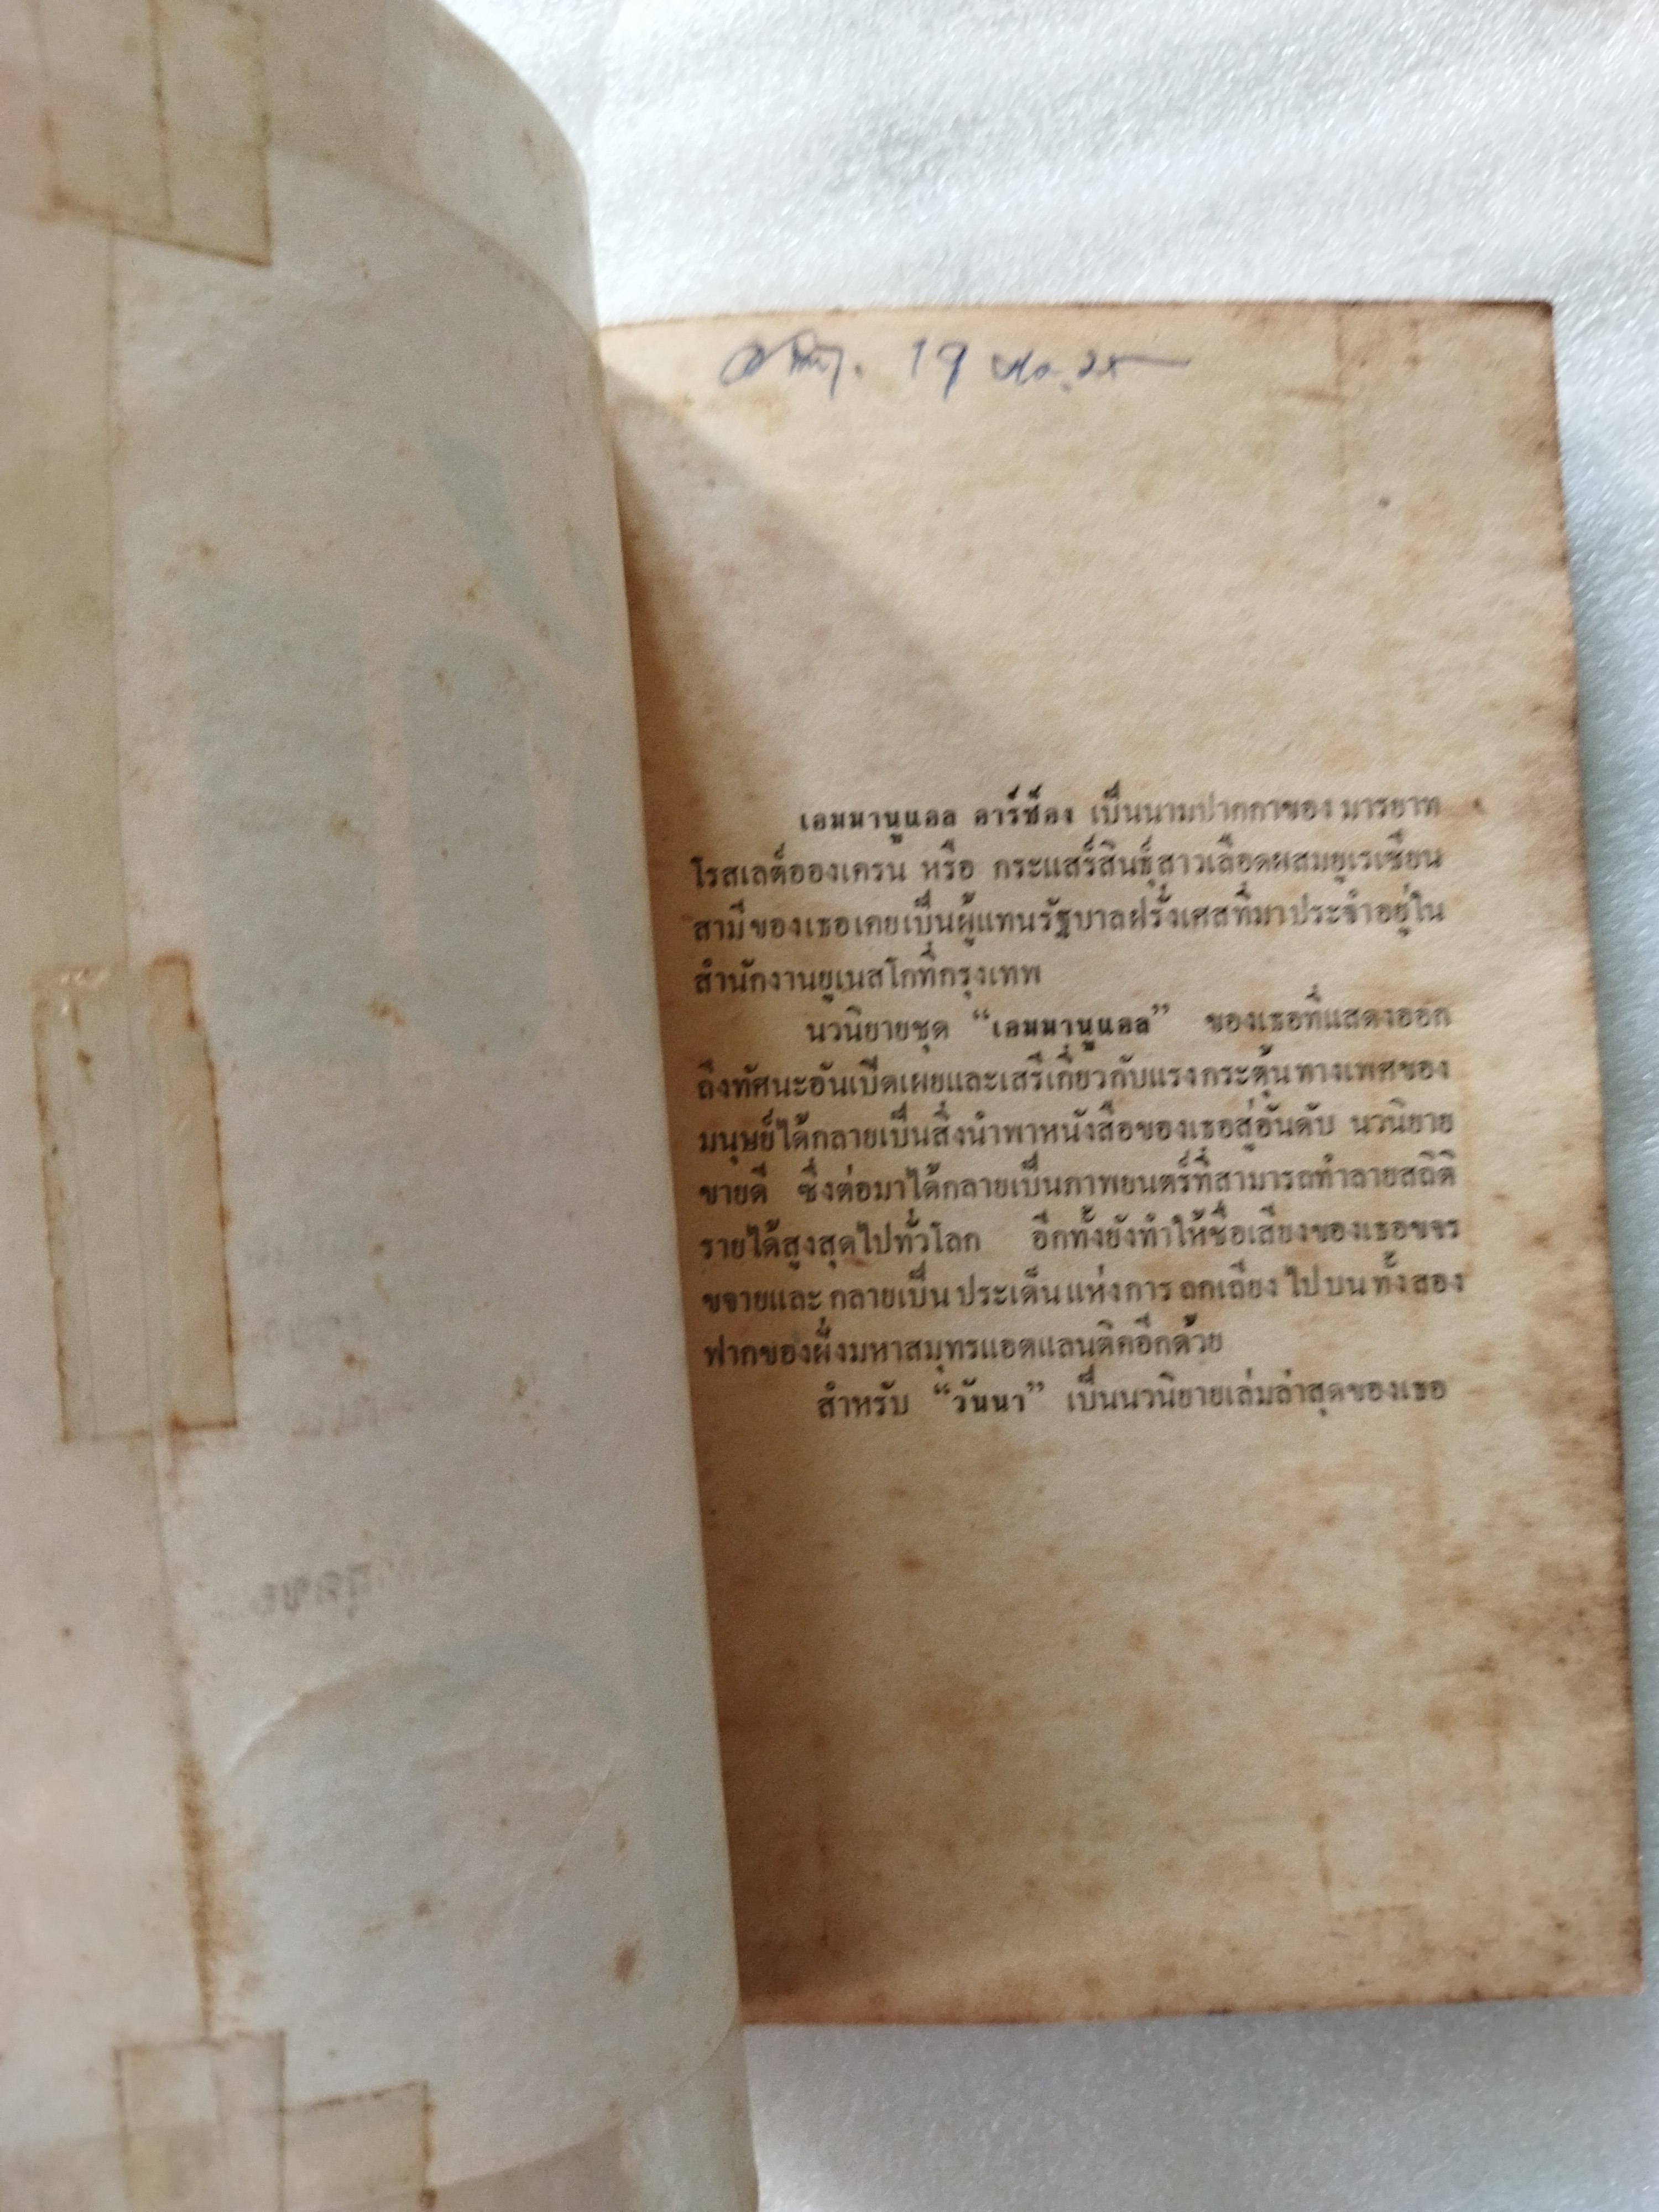 19 พ.ค. 25
เอมมานูแอล อาร์ซ็อง เป็นนามปากกาของ มารยาท
โรสเลต์อองเครน หรือ กระแสร์สินธุ์สาวเลือดผสมยูเรเซียน
สามีของเธอเคยเป็นผู้แทนรัฐบาลฝรั่งเศสที่มาประจำอยู่ใน
สำนักงานยูเนสโกที่กรุงเทพ
นวนิยายชุด “เอมมานูแอล” ของเธอที่แสดงออก
ถึงทัศนะอันเปิดเผยและเสรีเกี่ยวกับแรงกระตุ้นทางเพศของ
มนุษย์ได้กลายเป็นสิ่งนำพาหนังสือของเธอสู่อันดับ นวนิยาย
ขายดี ซึ่งต่อมาได้กลายเป็นภาพยนตร์ที่สามารถทำลายสถิติ
รายได้สูงสุดไปทั่วโลก อีกทั้งยังทำให้ชื่อเสียงของเธอขจร
ขจายและ กลายเป็น ประเด็น แห่งการ ถกเถียง ไป บน ทั้ง สอง
ฟากของฝั่งมหาสมุทรแอตแลนติคอีกด้วย
สำหรับ “วันนา” เป็นนวนิยายเล่มล่าสุดของเธอ